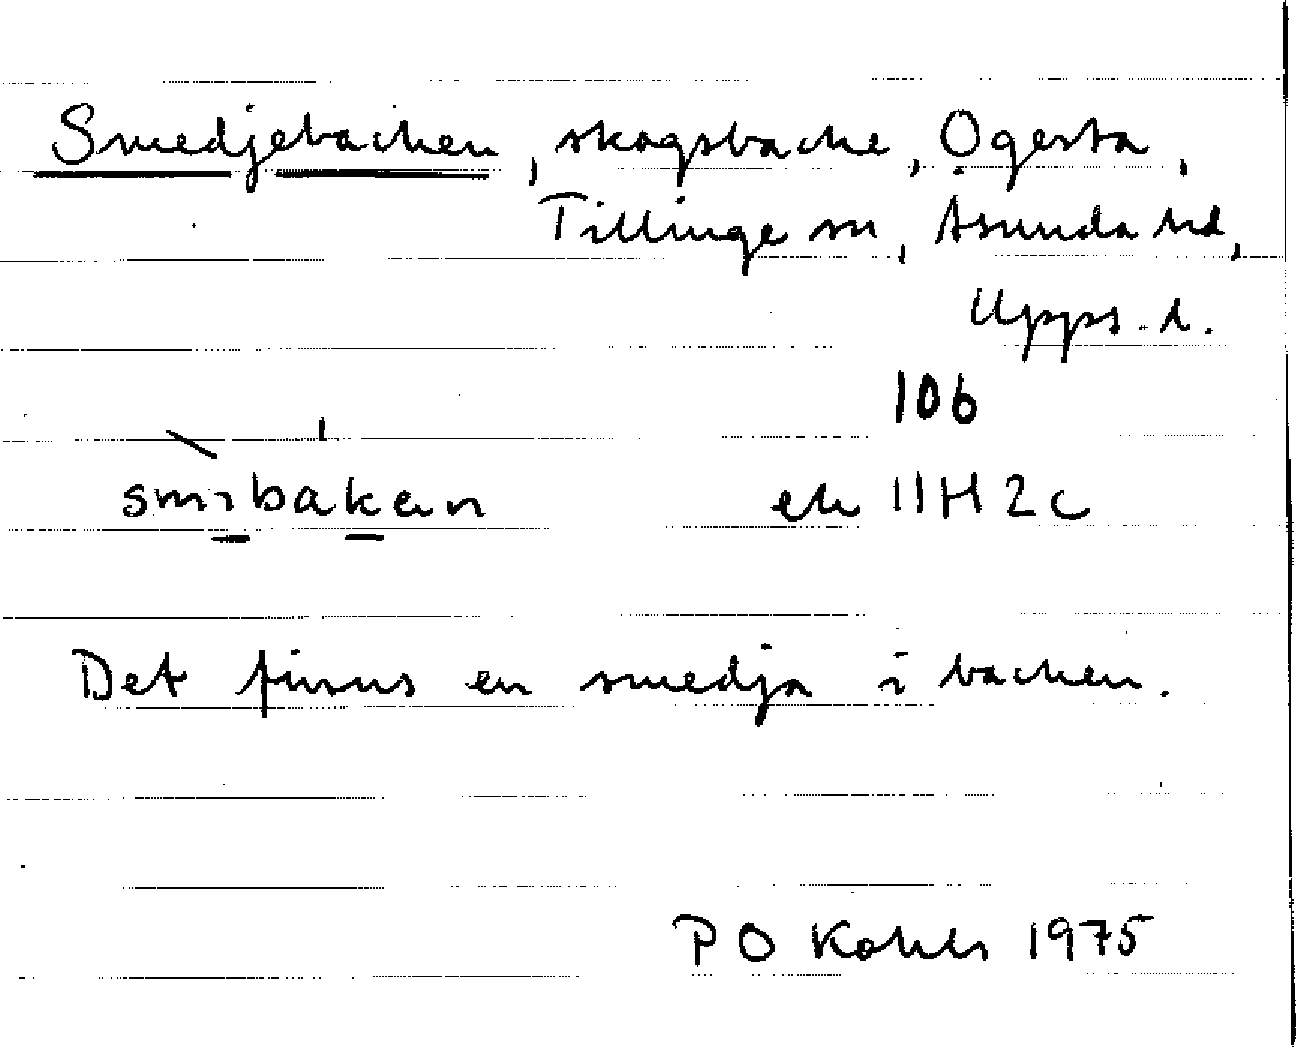 Smedjebacken, skogsbacke, Ögesta,
Tillinge sn, Åsunda hd,
Upps. l.
106
smibakan
ek 11H2c
Det finns en smedja i backen.
P O 1975